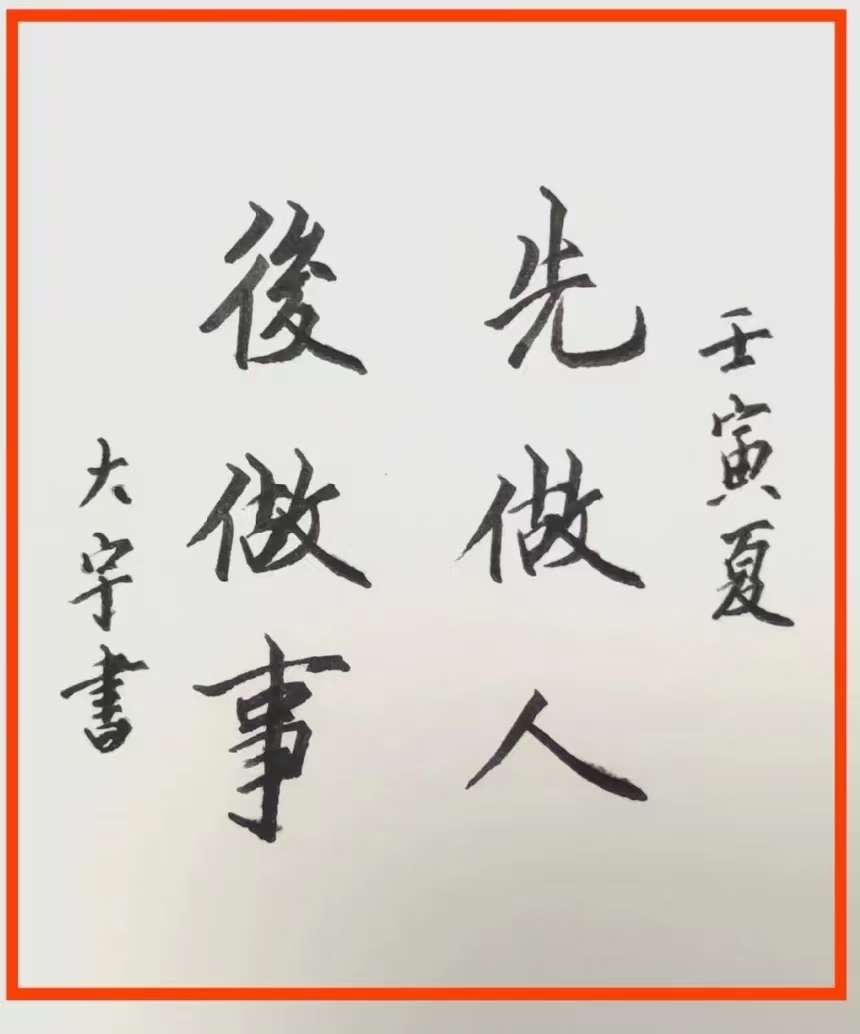 壬寅夏
先做人
後做事
大宇書